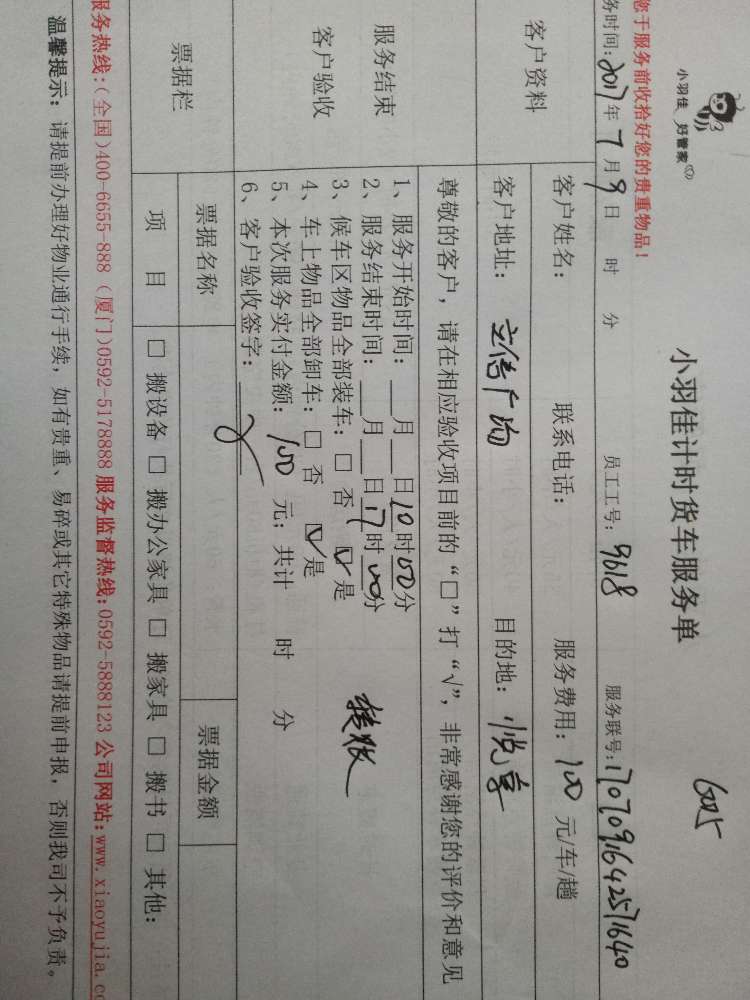 小羽佳 好管家
小羽佳计时货车服务单
6025
您于服务前收拾好您的贵重物品！
务时间：2017年7月9日 时 分 员工工号：9618 服务联号：1707091642571640
客户资料
客户姓名： 联系电话： 服务费用：100元/车/趟
客户地址：立信广场 目的地：悦享
服务结束
客户验收
尊敬的客户，请在相应验收项目前的“□”打“√”，非常感谢您的评价和意见
1、服务开始时间：___月___日10时00分
2、服务结束时间：___月___日17时00分
3、候车区物品全部装车：□ 否 ☑ 是
4、车上物品全部卸车：□ 否 ☑ 是
5、本次服务实付金额：100元；共计 时 分
6、客户验收签字：
转账
票据栏
票据名称 票据金额
项 目 □ 搬设备 □ 搬办公家具 □ 搬家具 □ 搬书 □ 其他：
服务热线：（全国）400-6655-888 （厦门）0592-5178888 服务监督热线：0592-5888123 公司网站：www.xiaoyujia.co
温馨提示：请提前办理好物业通行手续，如有贵重、易碎或其它特殊物品请提前申报，否则我司不予负责。